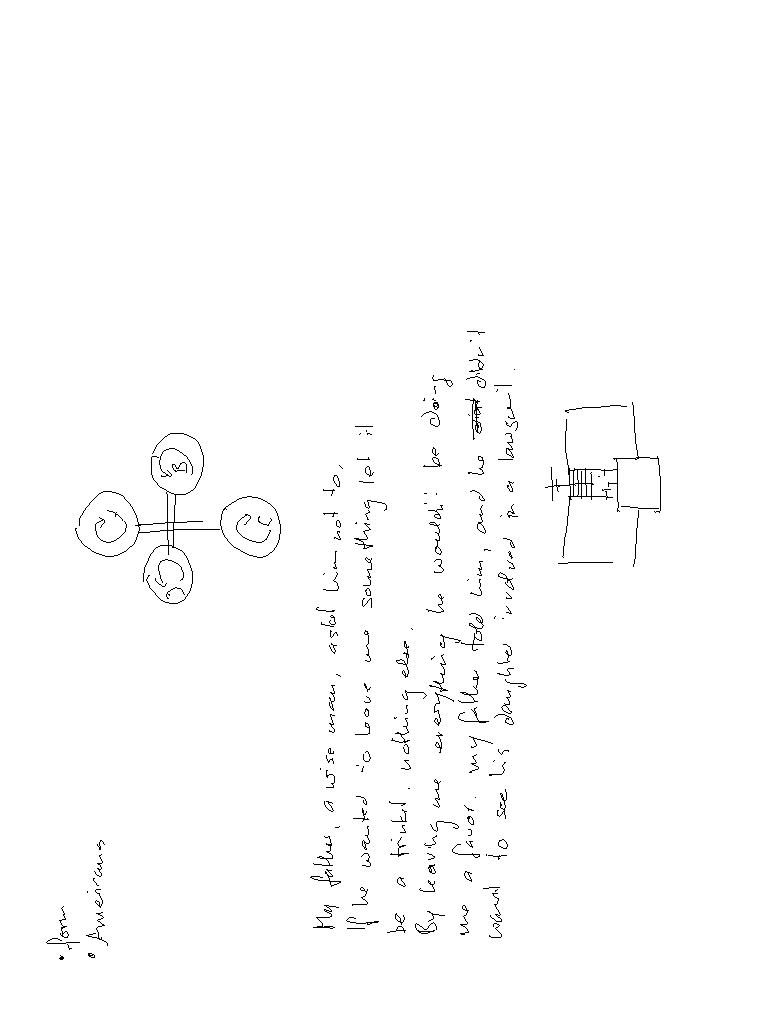 • form
• Americans
B
C
My father, a wise man, asked him not to,
If he wanted to leave me something let it
be a trinket. nothing else.
By leaving me everything he wouldn't be doing
me a favor. my father told him, and he didn't
want to see his daughter involved in a lawsuit.